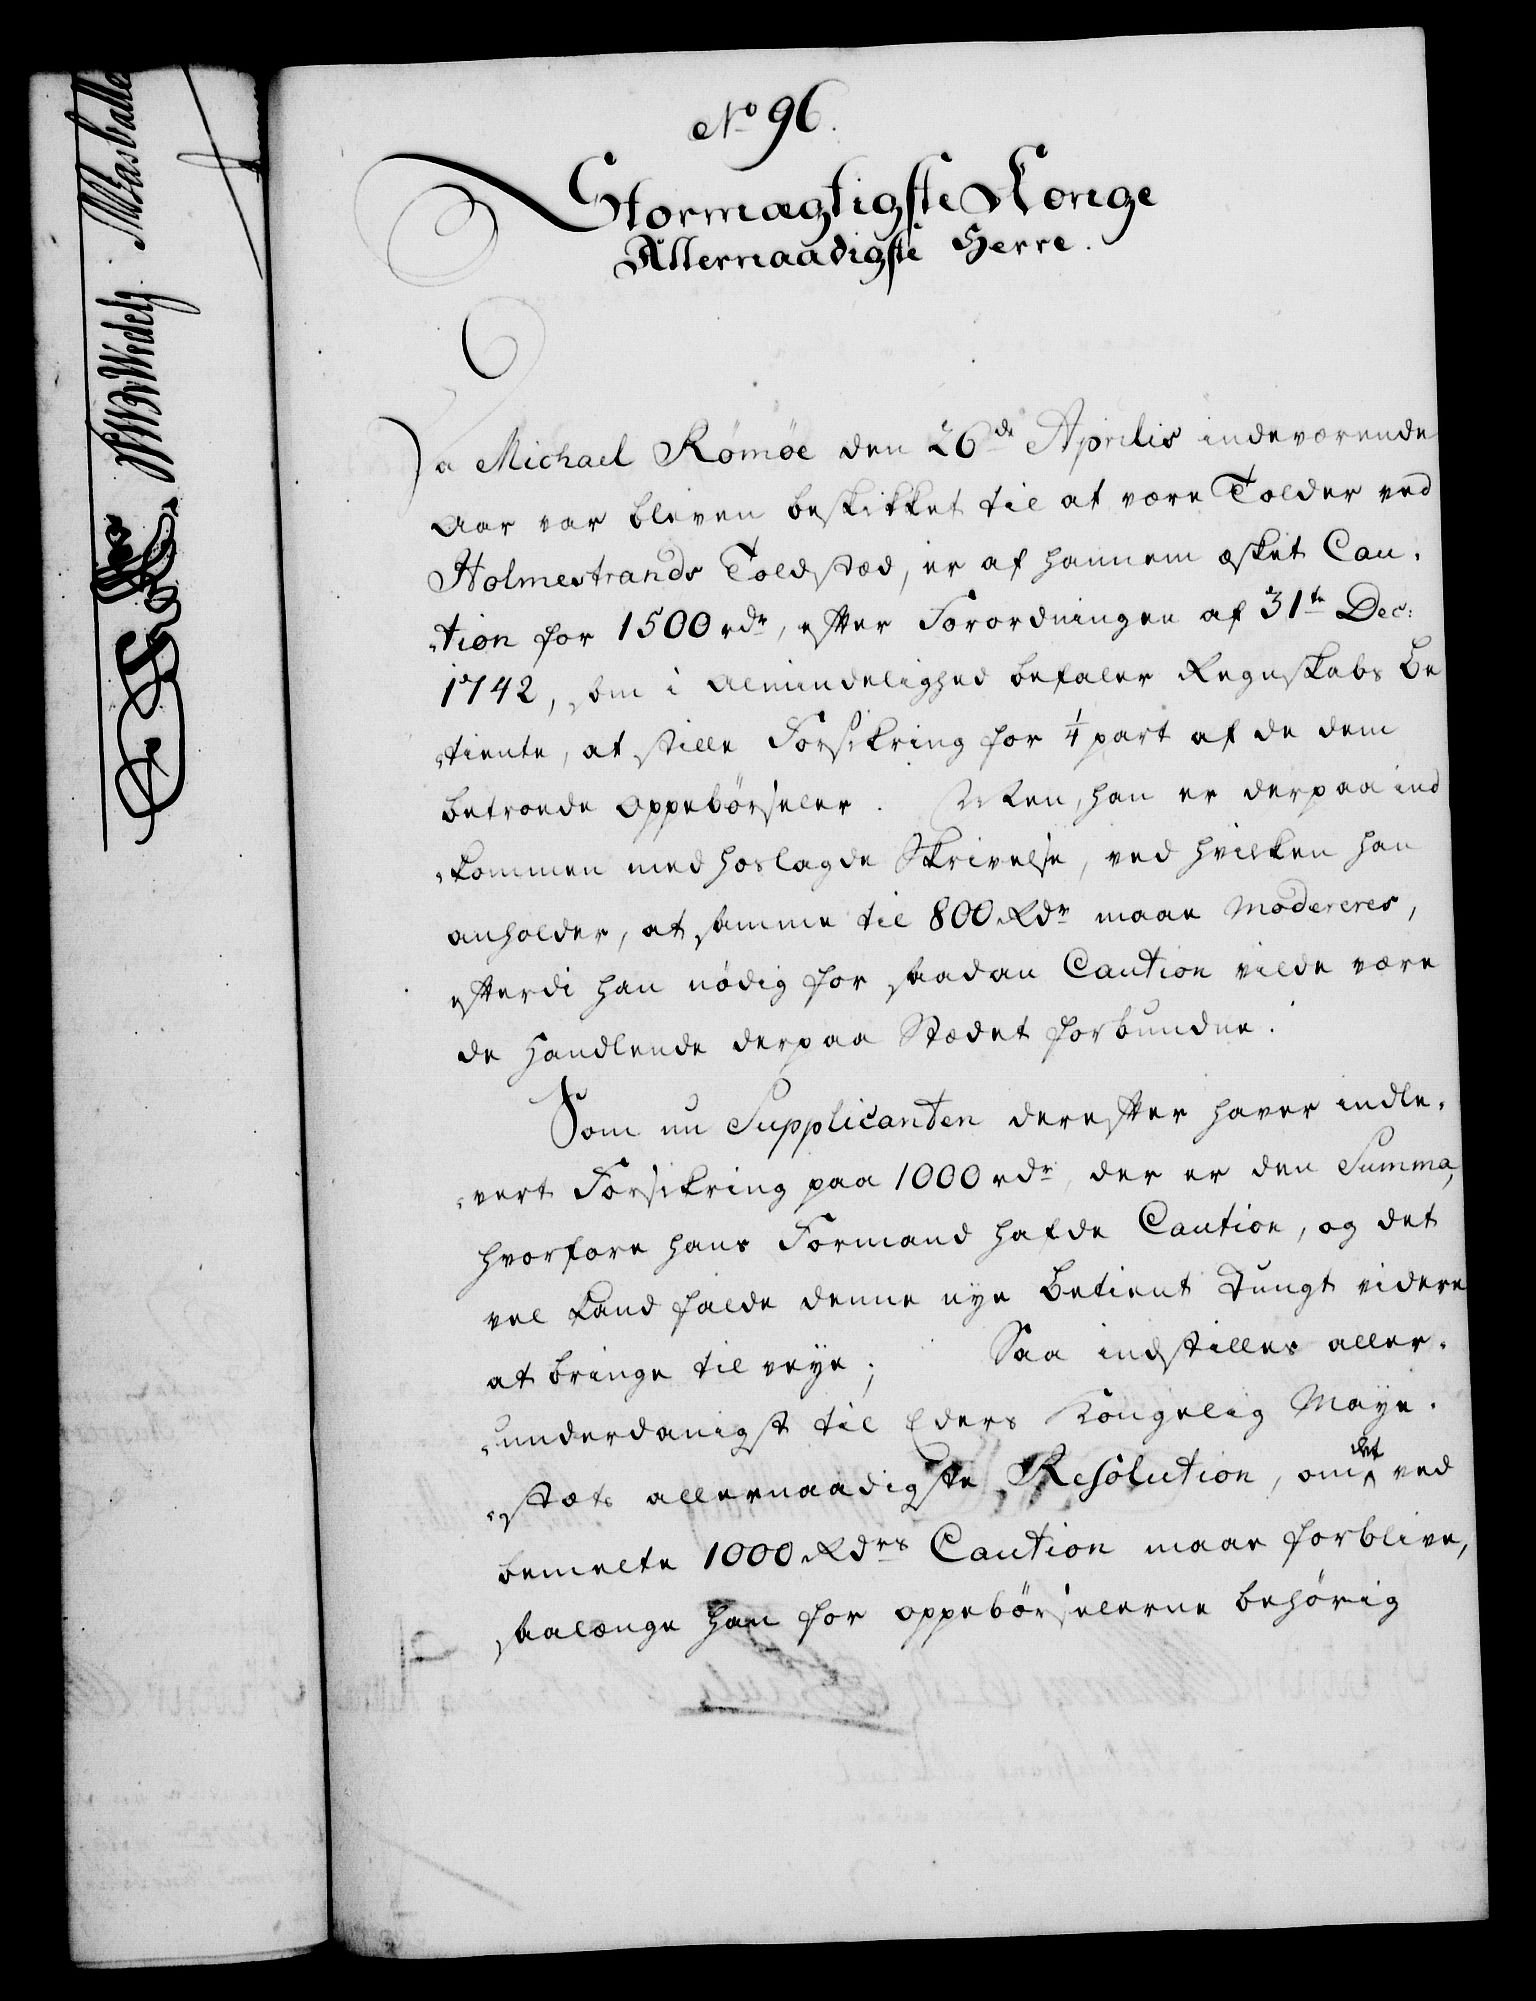 No 96.
Stormægtigste Konge
Allernaadigste Herre.
Da Michael Römöe den 26de Aprilis indeværende
Aar var bleven beskikket til at være Tolder ved
Holmestrands Toldstæd, er af hannem æsket Cau-
-tion for 1500 rdr, efter Forordningen af 31te Dec:
1742, som i Almindelighed befaler Regnskabs Be
-tiente, at stille Forsikring for 1/4 part af de dem
betroede Oppebörseler. Men, han er derpaa ind
-kommen med hoslagde Skrivelse, ved hvilken han
anholder, at samme til 800 Rdr maae modereres,
efterdi han nödig for saadan Caution vilde være
de Handlende derpaa Stædet forbunden.
Som nu Supplicanten derefter haver indle-
-vert Forsikring paa 1000 rdr, der er den Summa,
hvorfore hans Formand hafde Caution, og det
vel kand falde denne nye Betient tungt videre
at bringe til veye; Saa indstilles aller-
-underdanigst til Eders Kongelig Maye-
-stæts allernaadigste Resolution, om det ved
bemelte 1000 Rdrs Caution maae forblive,
saalænge han for Oppebörselerne behörig